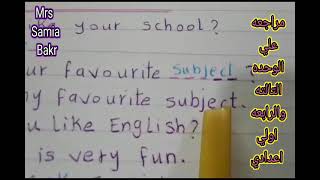 Mrs
Samia
Bakr
your school?
favourite subject ?
favourite subject.
like English?
is very fun.
مراجعه
علي
الوحده
التالته
والرابعه
اولي
اعدادي